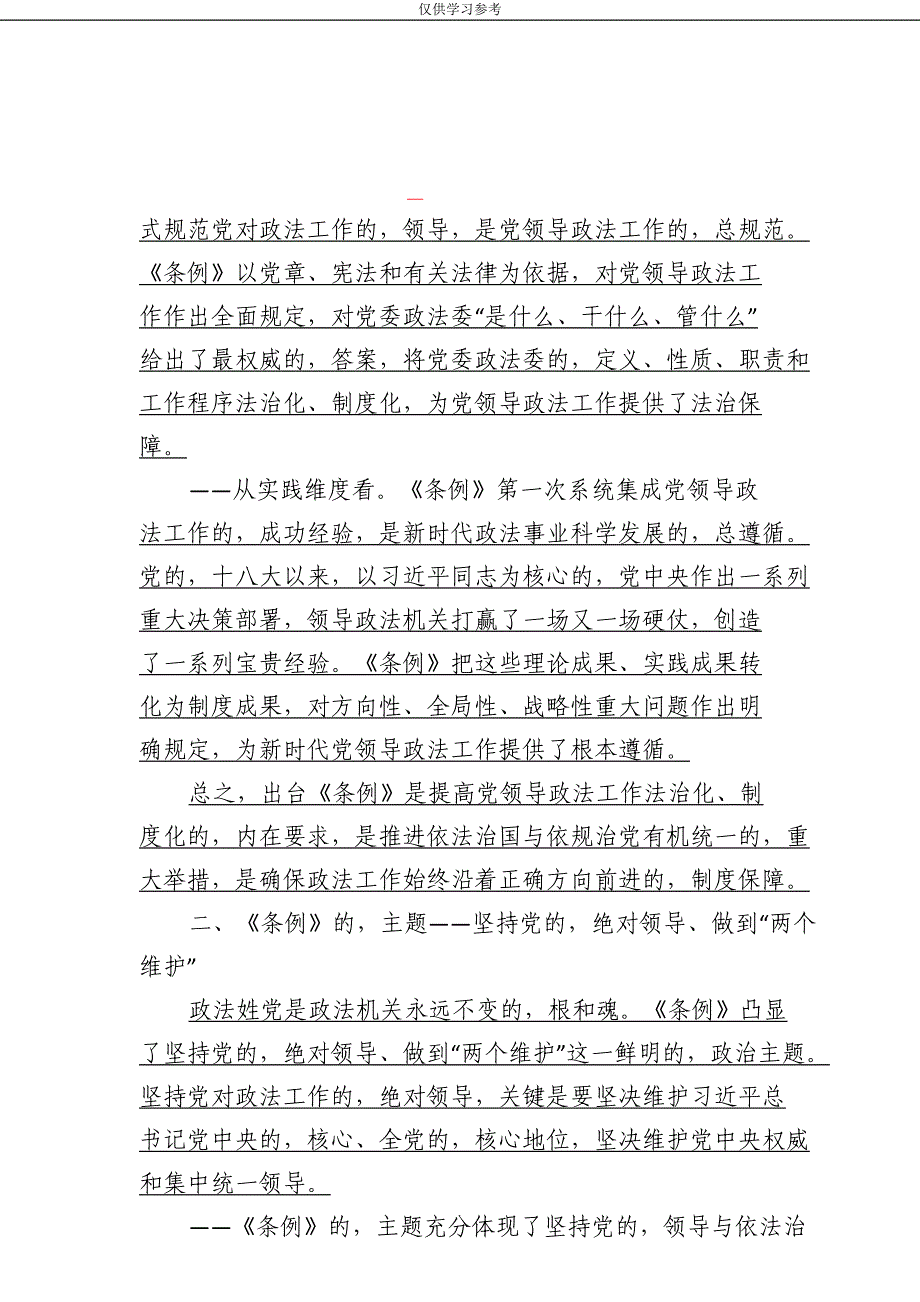 仅供学习参考
式规范党对政法工作的，领导，是党领导政法工作的，总规范。
《条例》以党章、宪法和有关法律为依据，对党领导政法工
作作出全面规定，对党委政法委“是什么、干什么、管什么”
给出了最权威的，答案，将党委政法委的，定义、性质、职责和
工作程序法治化、制度化，为党领导政法工作提供了法治保
障。
——从实践维度看。《条例》第一次系统集成党领导政
法工作的，成功经验，是新时代政法事业科学发展的，总遵循。
党的，十八大以来，以习近平同志为核心的，党中央作出一系列
重大决策部署，领导政法机关打赢了一场又一场硬仗，创造
了一系列宝贵经验。《条例》把这些理论成果、实践成果转
化为制度成果，对方向性、全局性、战略性重大问题作出明
确规定，为新时代党领导政法工作提供了根本遵循。
总之，出台《条例》是提高党领导政法工作法治化、制
度化的，内在要求，是推进依法治国与依规治党有机统一的，重
大举措，是确保政法工作始终沿着正确方向前进的，制度保障。
二、《条例》的，主题——坚持党的，绝对领导、做到“两个
维护”
政法姓党是政法机关永远不变的，根和魂。《条例》凸显
了坚持党的，绝对领导、做到“两个维护”这一鲜明的，政治主题。
坚持党对政法工作的，绝对领导，关键是要坚决维护习近平总
书记党中央的，核心、全党的，核心地位，坚决维护党中央权威
和集中统一领导。
——《条例》的，主题充分体现了坚持党的，领导与依法治